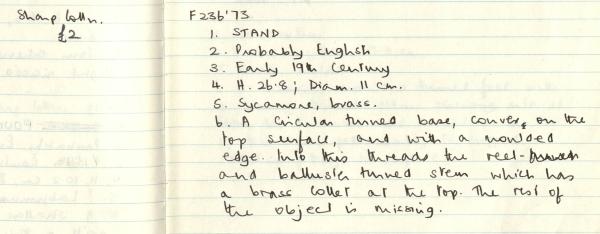 Sharp Colln.
£2
F236'73
1. STAND
2. Probably English
3. Early 19th Century
4. H. 26.8; Diam. 11 cm.
5. Sycamore, brass.
6. A circular turned base, convex on the
top surface, and with a moulded
edge. Into this threads the reel-
and baluster turned stem which has
a brass collet at the top. The rest of
the object is missing.